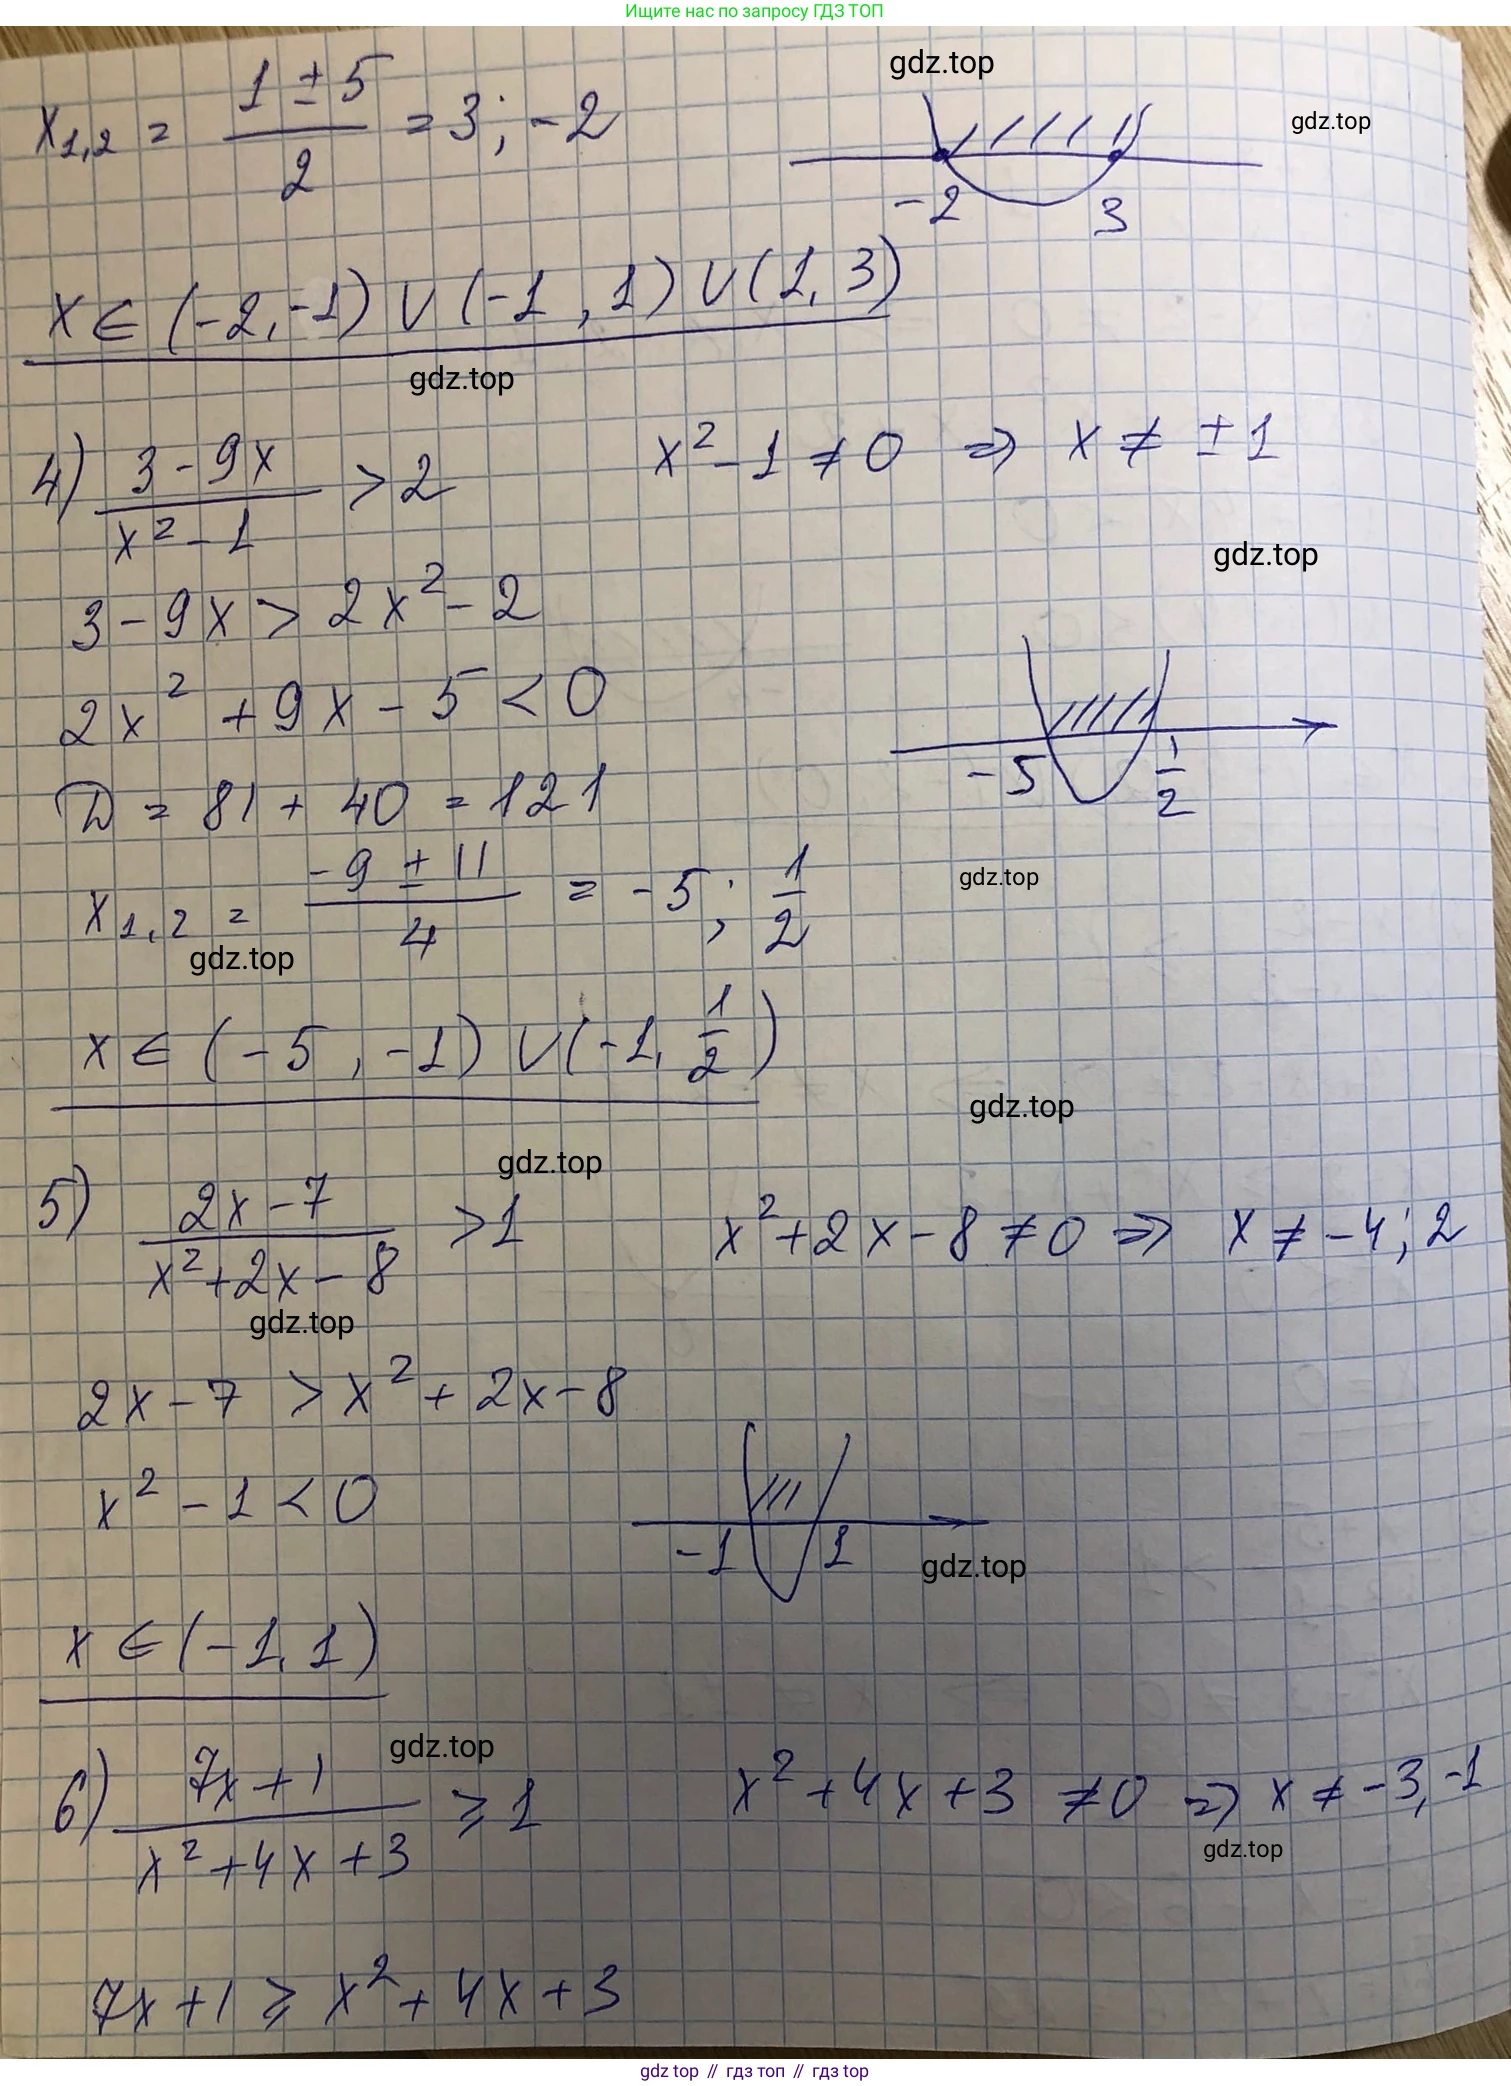 Ищите нас по запросу ГДЗ ТОП
x₁,₂ = (1 ± 5)/2 = 3; -2
gdz.top
gdz.top
-2 3
x ∈ (-2, -1) ∪ (-1, 1) ∪ (1, 3)
gdz.top
4) (3 - 9x)/(x² - 1) > 2 x² - 1 ≠ 0 => x ≠ ± 1
gdz.top
3 - 9x > 2x² - 2
2x² + 9x - 5 < 0
-5 1/2
D = 81 + 40 = 121
x₁,₂ = (-9 ± 11)/4 = -5; 1/2
gdz.top
gdz.top
x ∈ (-5, -1) ∪ (-1, 1/2)
gdz.top
gdz.top
5) (2x - 7)/(x² + 2x - 8) > 1 x² + 2x - 8 ≠ 0 => x ≠ -4; 2
gdz.top
2x - 7 > x² + 2x - 8
x² - 1 < 0
-1 1
gdz.top
x ∈ (-1, 1)
gdz.top
6) (7x + 1)/(x² + 4x + 3) ⩾ 1 x² + 4x + 3 ≠ 0 => x ≠ -3, -1
gdz.top
7x + 1 ⩾ x² + 4x + 3
gdz top // гдз топ // гдз top